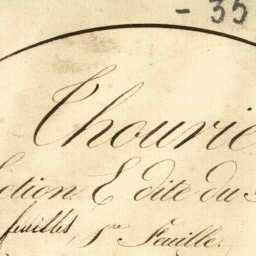 - 35
Thourie
ction E dite du
feuilles, 1re Feuille.